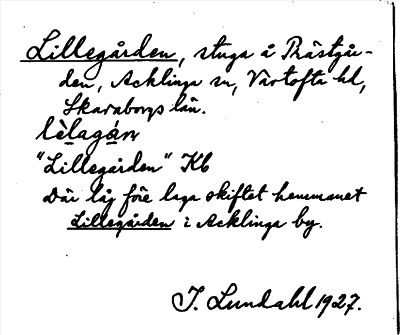 Lillegården, stuga å Prästgår-
den, Acklinga sn, Vartofta hd,
Skaraborgs län.
lèlagán
"Lillegården" Kb
Där låg före laga skiftet hemmanet
Lillegården i Acklinga by.
I. Lundahl 1927.